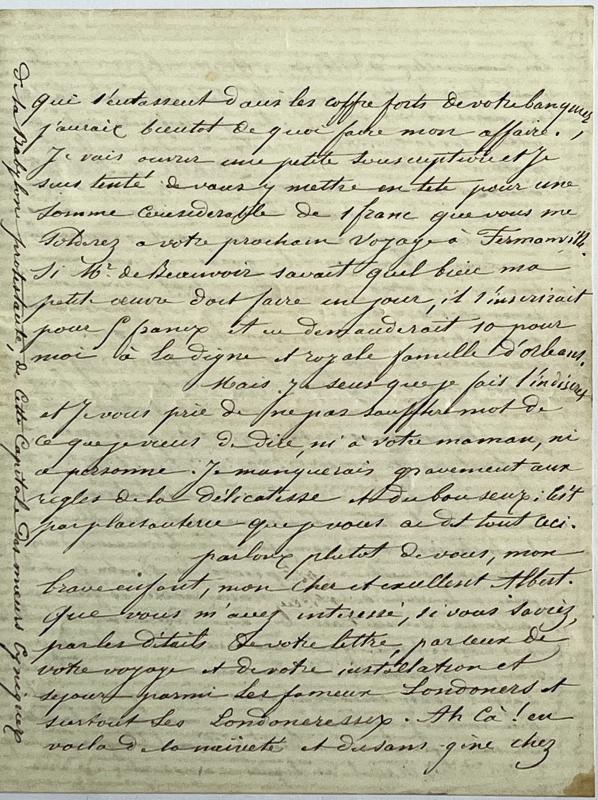 qui s'entassent dans les coffre forts de votre banquier,
j'aurais bientot de quoi faire mon affaire.
Je vais ouvrir une petite souscription et je
suis tenté de vous y mettre en tete pour une
somme considerable de 1 franc que vous me
solderez a votre prochain voyage à Fermanville.
Si Mr. de Beauvoir savait quel bien ma
petite œuvre doit faire un jour, il s'inscrirait
pour 5 francs et en demanderait 10 pour
moi à la digne et royale famille d'orléans.
Mais je sens que je fais l'indiscret
et je vous prie de ne pas souffler mot de
ce que je viens de dire, ni à votre maman, ni
a personne. Je manquerais gravement aux
régles de la délicatesse et du bon sens; c'est
par plaisanterie que je vous ai dit tout ceci.
parlons plutot de vous, mon
brave enfant, mon cher et excellent Albert.
que vous m'avez interessé, si vous saviez,
par les détails de votre lettre, par ceux de
votre voyage et de votre installation et
sejour parmi les fameux Londoners et
surtout les Londoneresses. Ah Çà! en
voila de la naiveté et du sans-gène chez
de la Babylone protestante, de cette Capitale des mœurs Cyniques